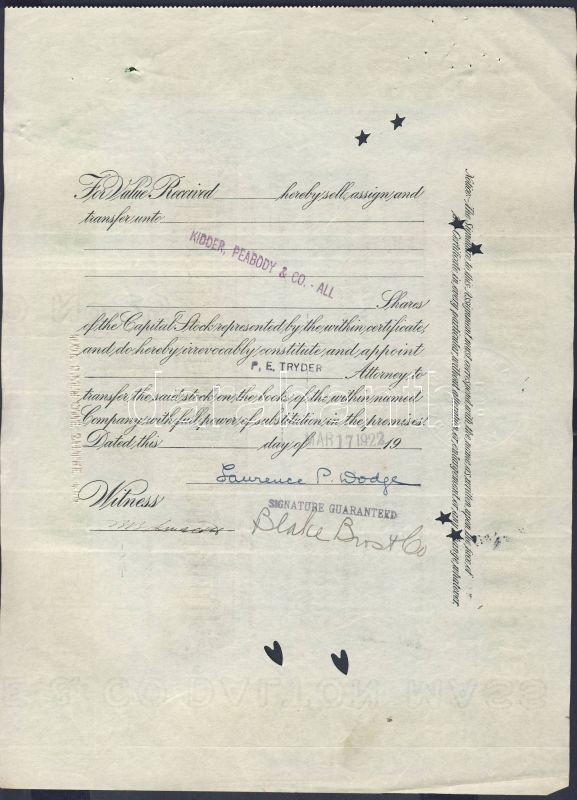 For Value Received hereby sell, assign and
transfer unto
KIDDER, PEABODY & CO. - ALL
Shares
of the Capital Stock represented by the within certificate,
and do hereby irrevocably constitute and appoint
P. E. TRYDER Attorney to
transfer the said stock on the books of the within named
Company with full power of substitution in the premises.
Dated, this day of MAR 17 1922 19
Laurence P. Dodge
Witness SIGNATURE GUARANTEED
Blake Bros & Co
Notice: The Signature to this Assignment must correspond with the name as written upon the face of
Certificate in every particular, without alteration or enlargement or any change whatever.